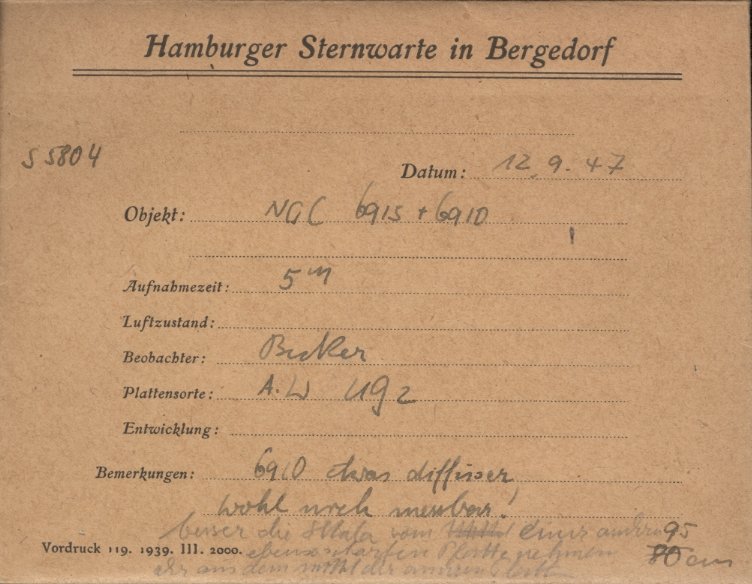 Hamburger Sternwarte in Bergedorf
S 5804
Datum: 12. 9. 47
Objekt: NGC 6915 + 6910
Aufnahmezeit: 5 m
Luftzustand:
Beobachter: Becker
Plattensorte: A.W UG2
Entwicklung:
Bemerkungen: 6910 etwas diffuser
wohl noch messbar!
besser die Skala vom einer andern 95
Vordruck 119. 1939. III. 2000. ebenso scharfen Platte nehmen 80 cm
aus dem Mittel der anderen